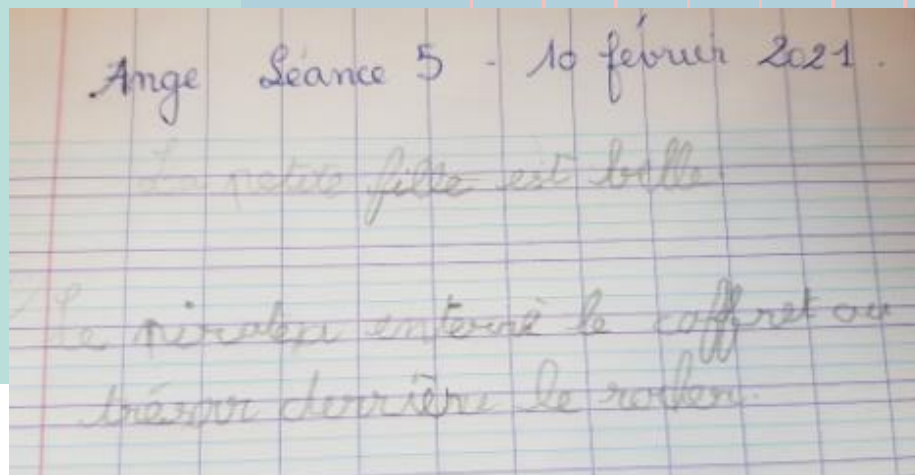 Ange Séance 5 - 10 février 2021.
La petite fille est belle.
Le enterré le coffret au
trésor derrière le